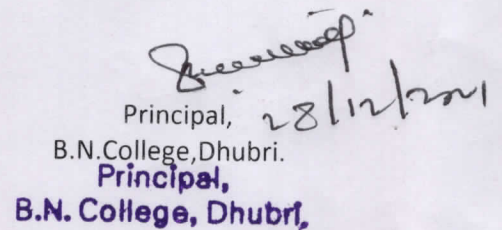 Principal, 28/12/2021
B.N.College,Dhubri.
Principal,
B.N. College, Dhubri,